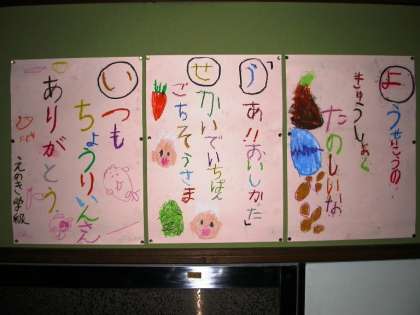 きゅうしょく
たのしいな
「うあ!!おいしかた」
せかいでいちばん
ごちそうさま
いつも
ちょうりいんさん
ありがとう
えのき学級